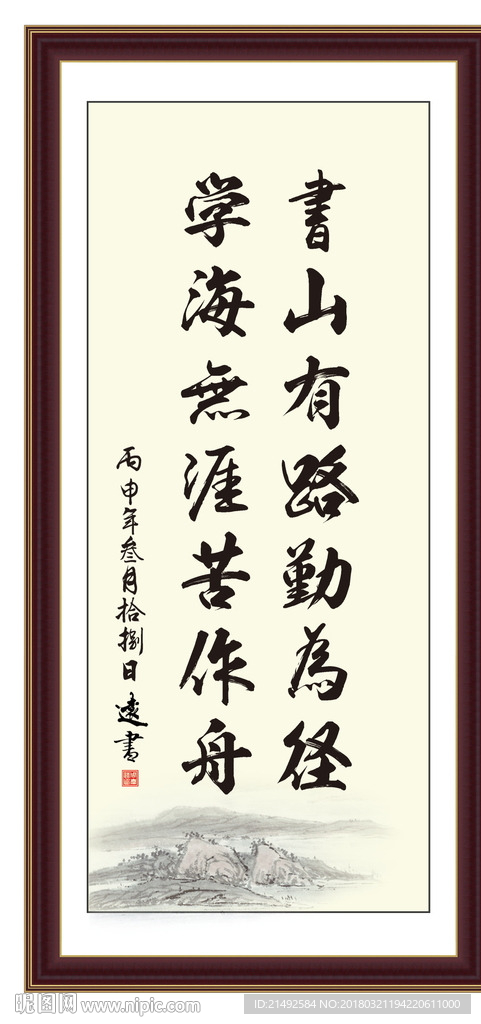 書山有路勤為径
学海無涯苦作舟
丙申年叁月拾捌日遠書
昵图网 www.nipic.com
ID:21492584 NO:20180321194220611000